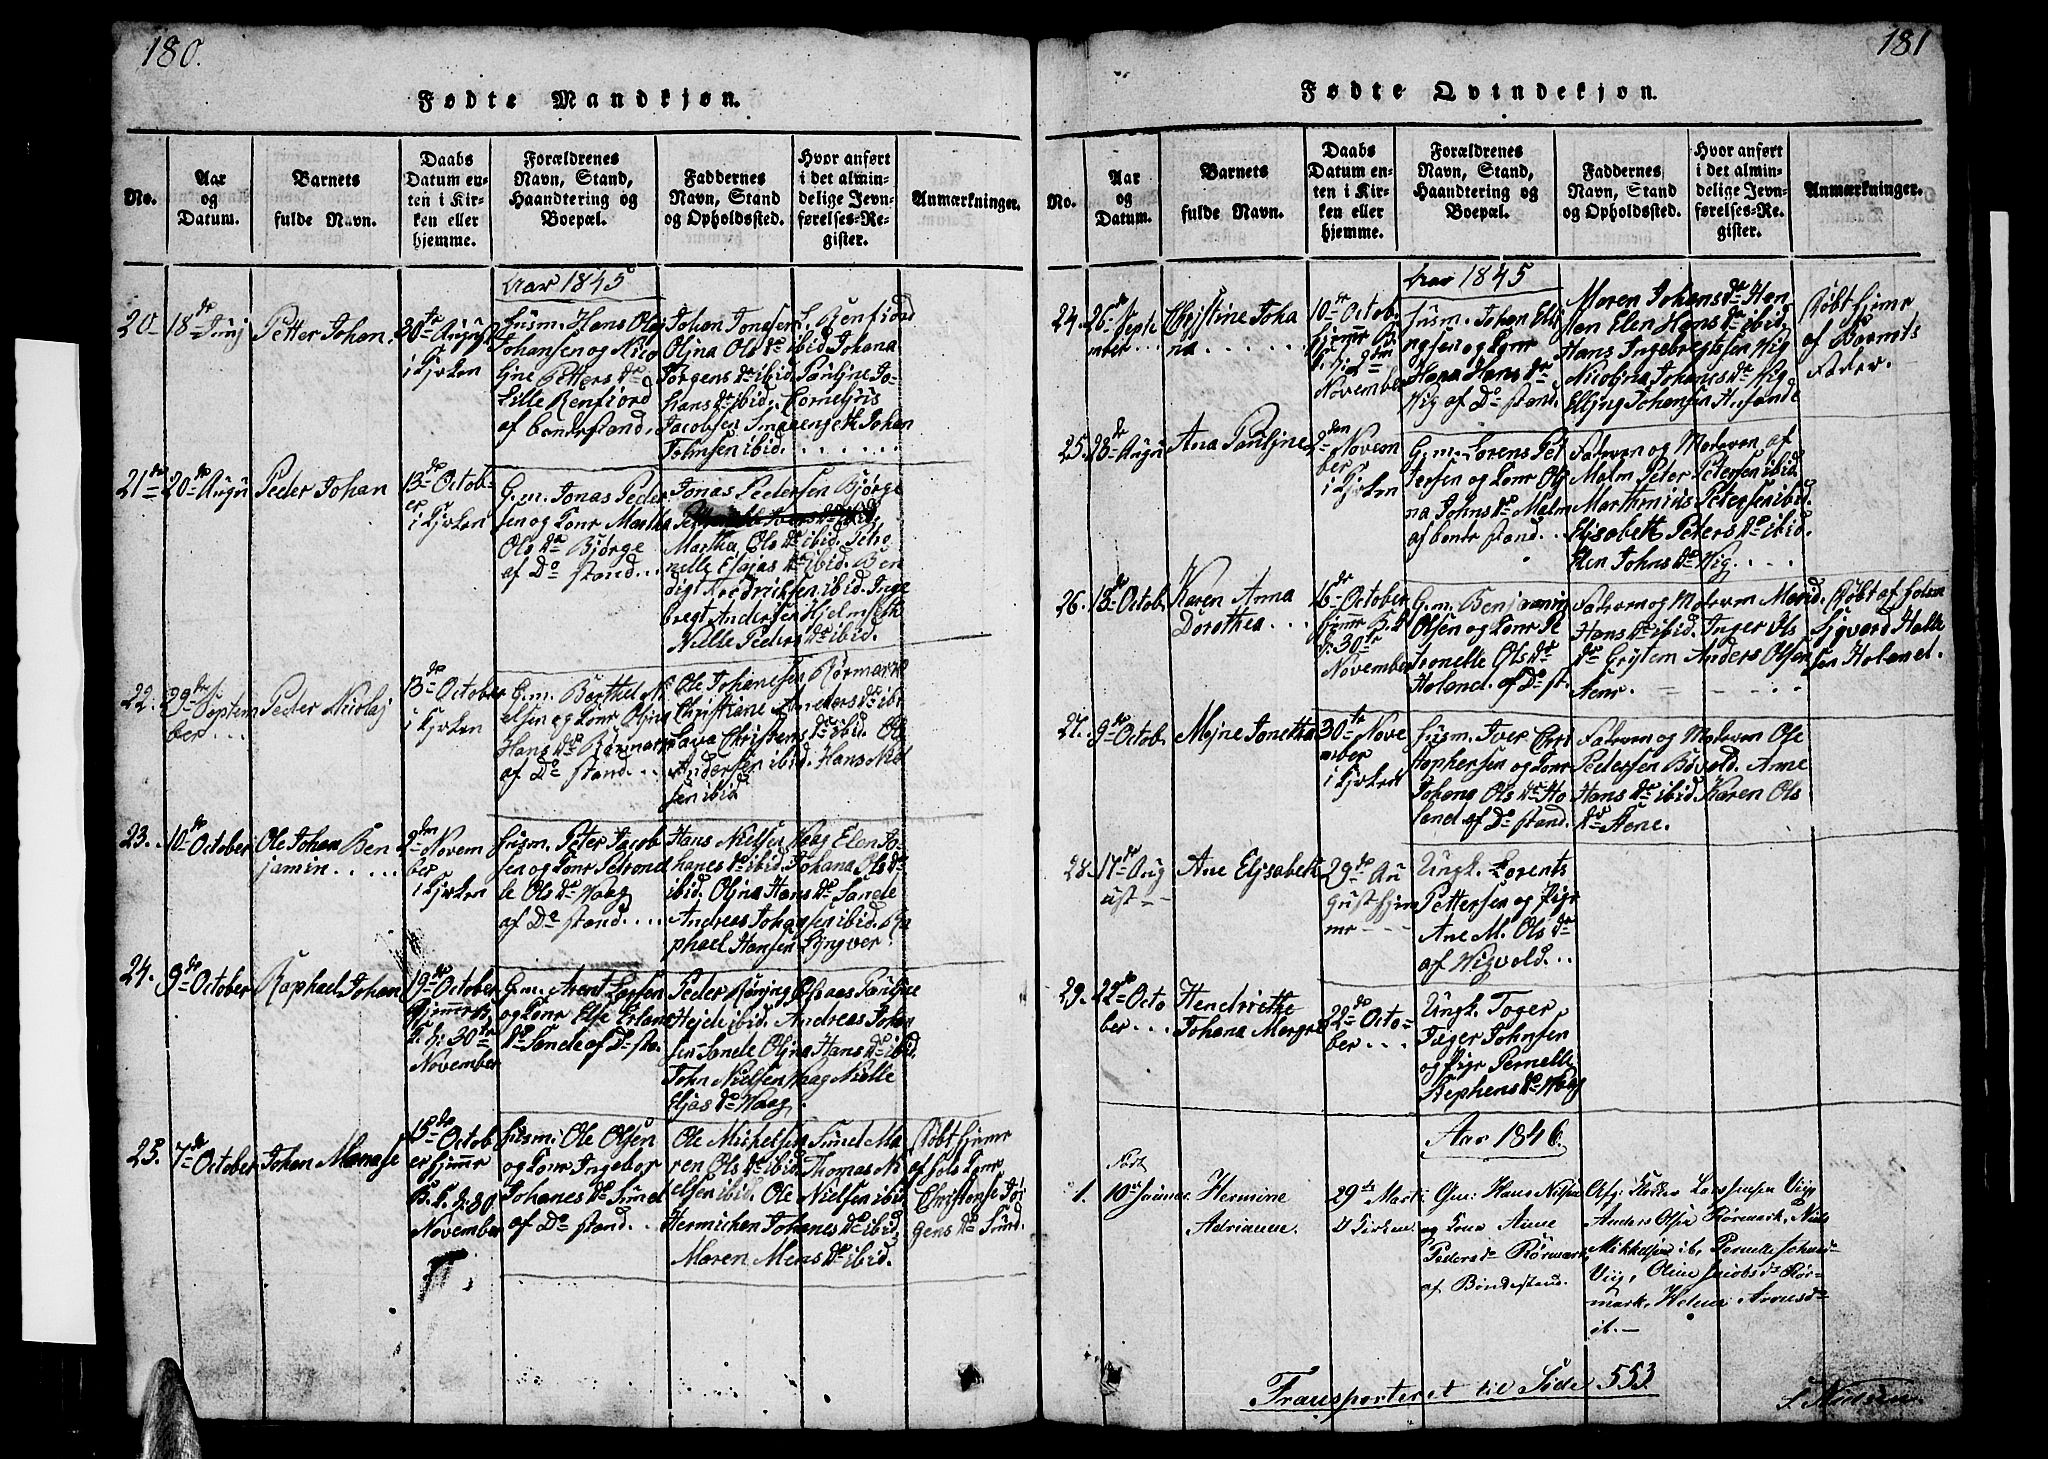 180.
Fødte Mandkjøn.
No.
Aar
og
Datum.
Barnets
fulde Navn.
Daabs
Datum en-
ten i Kir-
ken eller
hjemme.
Forældrenes
Navn, Stand,
Haandtering og
Boepæl.
Faddernes
Navn, Stand
og Opholdssted.
Hvor anført
i det almin-
delige Jevn-
førelses-Re-
gister.
Anmærkninger.
Aar 1845
20
18de Junj
Petter Johan.
i Kjrken
Husm. Hans Olaj
Johansen og
Petters dr
Lille Renfiord
af bondestand.
Johan Jonassen L. Renfiord
Oljna Ols dr ibid Johana
Jørgens dr ibid Pauljne Jo-
hans dr ibid, Corneljus
Jacobsen Johan
Johnsen ibid.
21
20de Augu
Peder Johan
13de Octob-
er
i Kjrken
G.m. Jonas Peder
sen og Konr Martha
Ols dr Bjørge
af Do stand...
Jonas Pedersen Bjørge
Martha Ols dr ibid. Petro
nelle Esajas dr ibid. Ben
digt Fredriksen ibid. Inge
bregt Andersen Hjelmseth
Nelle Peders dr ibid.
22.
29de Septem
ber...
Peder Nicolaj
13de October
i Kjrken
G.m. Berthel Ni
elsen og Konr Oljna
Hans dr Rørmark
af Do stand...
Ole Johanesen Rørmark
Christiane Anders dr ibi
Christens dr ibid. Ole
Andersen ibid. Hans Niel
sen ibid
23.
10de October
Ole Johan Ben
jamin.....
2den Novem
ber
i Kjrken
Husm. Peter Jacob
sen og Konr Petronel
le Ols dr Vaag
af Do stand....
Hans Nielsen Vaag Elen Jo-
hanes dr ibid. Johana Ols dr
ibid. Oljna Hans dr Sande
Andreas Johansen ibid. Ra
phael Hansen Lyngver
24.
9de October
Raphael Johan
19de October
30te
November
G.m. Arent Larsen
og Konr Else Erland
dr Sande af Do sta.
Peder Røning
Hejde ibid. Andreas Johan
sen Sande Oljna Hans dr ibid.
John Nielsen Vaag Nielle
Eljas dr Vaag.
25.
7de October
Johan Manase
15de Octob
er hjemr
B. K. d: 30
November
Husm: Ole Olsen
og Konr Ingebor
Johanes dr Sund
af Do stand...
Ole Michelsen Sund Ma
ren Ols dr ibid. Thomas Ni
elsen ibid. Ole Nielsen ibid
Hermichen Johanes dr ibid,
Maren Mons dr ibid.
Døbt hjemr
af Konr
Christense Jør
gens dr Sund.
181
Fødte Qvindekjøn.
No.
Aar
og
Datum.
Barnets
fulde Navn.
Daabs
Datum en-
ten i Kir-
ken eller
hjemme.
Forældrenes
Navn, Stand,
Haandtering og
Boepæl.
Faddernes
Navn, Stand
og Opholdssted.
Hvor anført
i det almin-
delige Jevn-
førelses-Re-
gister.
Anmærkninger.
Aar 1845
24.
26de Septe
mber...
Christine Joha
na......
10de Octob.
hjemr
November
Husm. Johan Elli
ngsen og Konr
Hana Hans dr
Vig af Do stand.
Maren Johans dr Han
sen Elen Hans dr ibid
Hans Ingebregtssen Vig
Nicoljna Johans dr Vig
Elljng Johansen
Døbt hjemr
af Barnets
Fader.
25.
23de Augu
Ana Pauljne
2den Novem
ber
i Kjrken
G.m. Lorens Pet
tersen og Konr Olj
na Johns dr Malm
af bonde stand..
Faderen og Moderen af
Malm Peter Petersen ibid.
Marthenius Petersen ibid.
Eljsabeth Peters dr ibid.
Elen Johns dr Vig....
26.
13de Octob.
Karen Anna
Dorothea...
16de October
hjemr B. K.
d: 30te
November
G.m. Benjamin
Olsen og Konr Pe
tronelle Ols dr
Holand. af Do st.
Faderen og Moderen Marid.
Hans dr ibid. Inger Ols
dr Grytem Anders Olsen
Aenr.
Døbt af
Sjgvard Halle
sen Holand.
27.
9de Octob.
Mejne Jonetta
30te Nove
mber
i Kjrken
Husm. Iver Chri
stophersen og Konr
Johana Ols dr Ho
land af Do stand.
Faderen og Moderen Ole
Pedersen Bøvold. Ane
Hans dr ibid. Karen Ols
dr Aene.
28.
17de Aug
ust
Ane Eljsabeth
29de Au
gust hjem
mr
Ungk. Lorents
Pettersen og Pige
Ane M. Ols dr
af Vigvold...
29.
22de Octo
ber...
Hendriethe
Johana Margre
22de Octo-
ber...
Ungk. Toger
Tøger Johnsen
og Pige Pernelle
Stephens dr Vaag
Aar 1846.
Født
1.
10de Januar.
Hermine
Adrianna.
29de Marti
i Kirken
Gm: Hans Nilsen
og Kone Anne
Peders dr Rørmark
af Bondestand.
Larsensen Viig
Anders Olsen Rørmark, Niels
Mikkelsen ib, Pernelle Johnsdr
Viig, Oline Jacobs dr Rør-
mark, Helene Arents dr
ib.
Transporteret til Side 553.